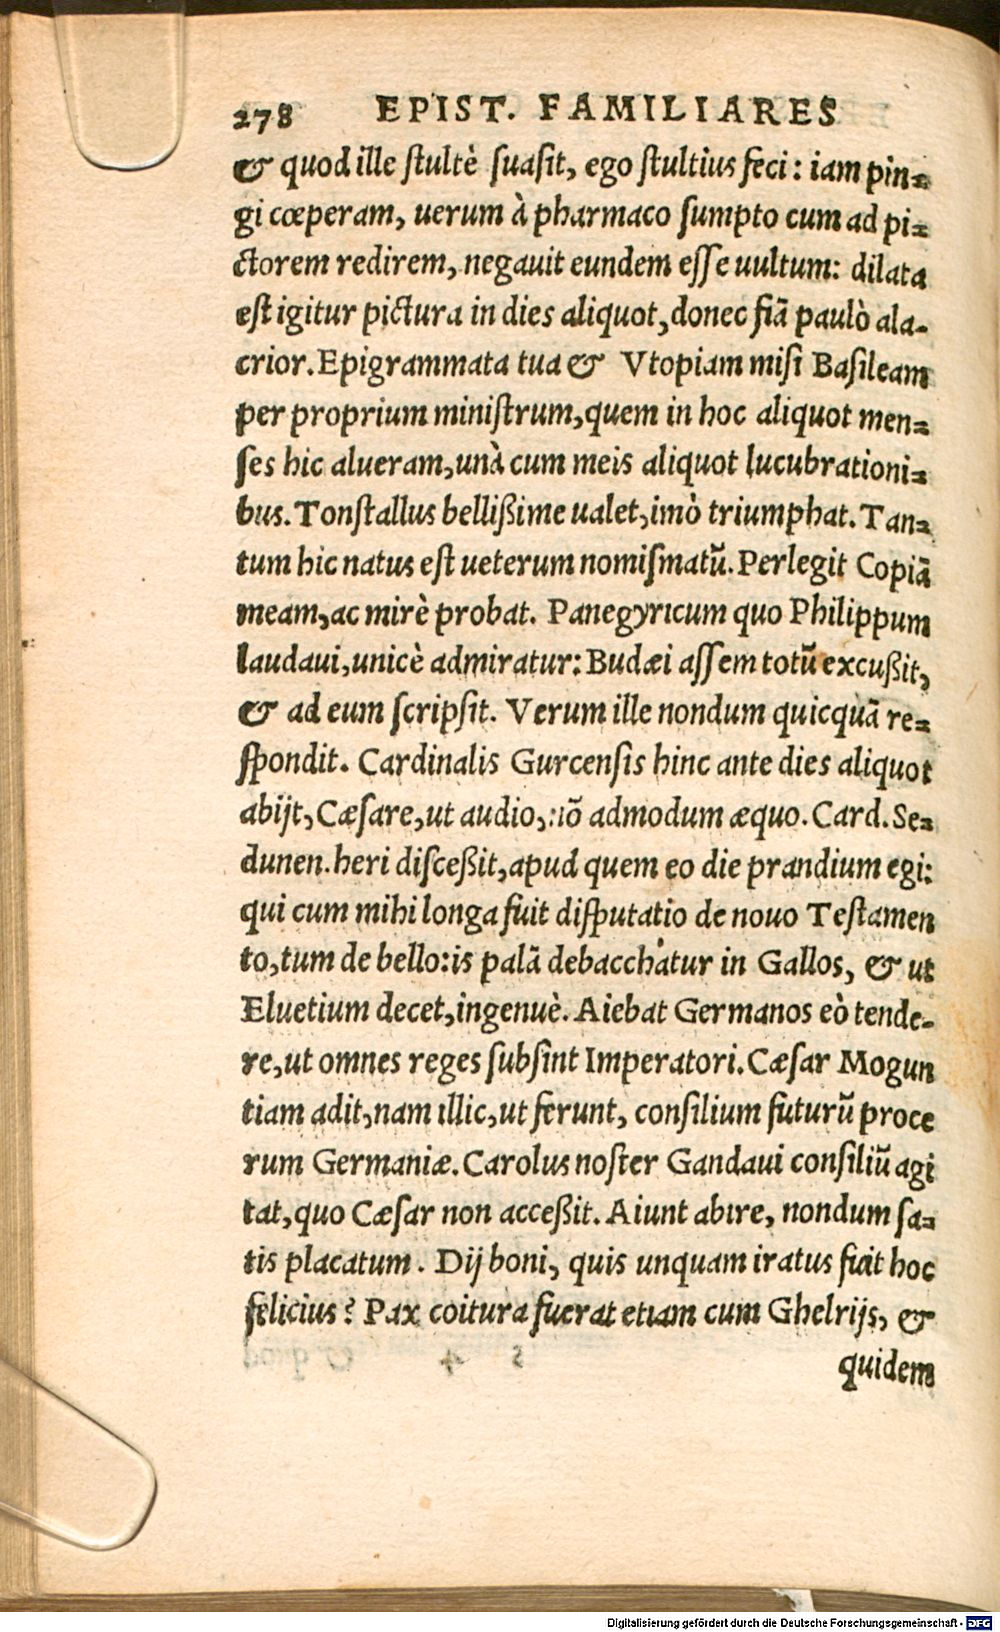 278 EPIST. FAMILIARES
& quod ille ſtultè ſuaſit, ego ſtultius feci: iam pin-
gi cœperam, uerum à pharmaco ſumpto cum ad pi-
ctorem redirem, negauit eundem eſſe uultum: dilata
eſt igitur pictura in dies aliquot, donec fiã paulò ala-
crior. Epigrammata tua & Vtopiam miſi Baſileam
per proprium miniſtrum, quem in hoc aliquot men-
ſes hic alueram, unà cum meis aliquot lucubrationi-
bus. Tonſtallus belliſſime ualet, imò triumphat. Tan-
tum hic natus eſt ueterum nomiſmatũ. Perlegit Copiã
meam, ac mirè probat. Panegyricum quo Philippum
laudaui, unicè admiratur: Budæi aſſem totũ excußit,
& ad eum ſcripſit. Verum ille nondum quicquã re-
ſpondit. Cardinalis Gurcenſis hinc ante dies aliquot
abijt, Cæſare, ut audio, nõ admodum æquo. Card. Se-
dunen. heri diſceßit, apud quem eo die prandium egi:
qui cum mihi longa fuit diſputatio de nouo Teſtamen
to, tum de bello: is palã debacchatur in Gallos, & ut
Eluetium decet, ingenuè. Aiebat Germanos eò tende-
re, ut omnes reges ſubſint Imperatori. Cæſar Mogun
tiam adit, nam illic, ut ferunt, conſilium futurũ proce
rum Germaniæ. Carolus noſter Gandaui conſiliũ agi
tat, quo Cæſar non acceßit. Aiunt abire, nondum ſa-
tis placatum. Dij boni, quis unquam iratus fuit hoc
felicius? Pax coitura fuerat etiam cum Ghelrijs, &
quidem
Digitalisierung gefördert durch die Deutsche Forschungsgemeinschaft - DFG